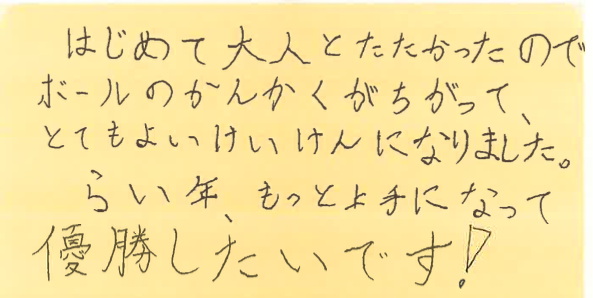 はじめて大人とたたかったので
ボールのかんかくがちがって、
とてもよいけいけんになりました。
らい年、もっと上手になって
優勝したいです!